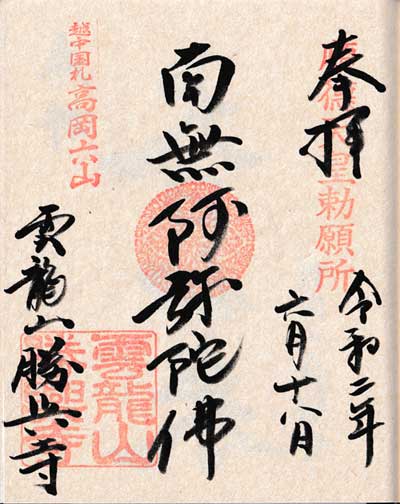 奉拝
後奈良天皇勅願所
令和二年
六月十八日
南無阿弥陀佛
越中国札
高岡六山
雲龍山勝興寺
雲龍山
勝興寺